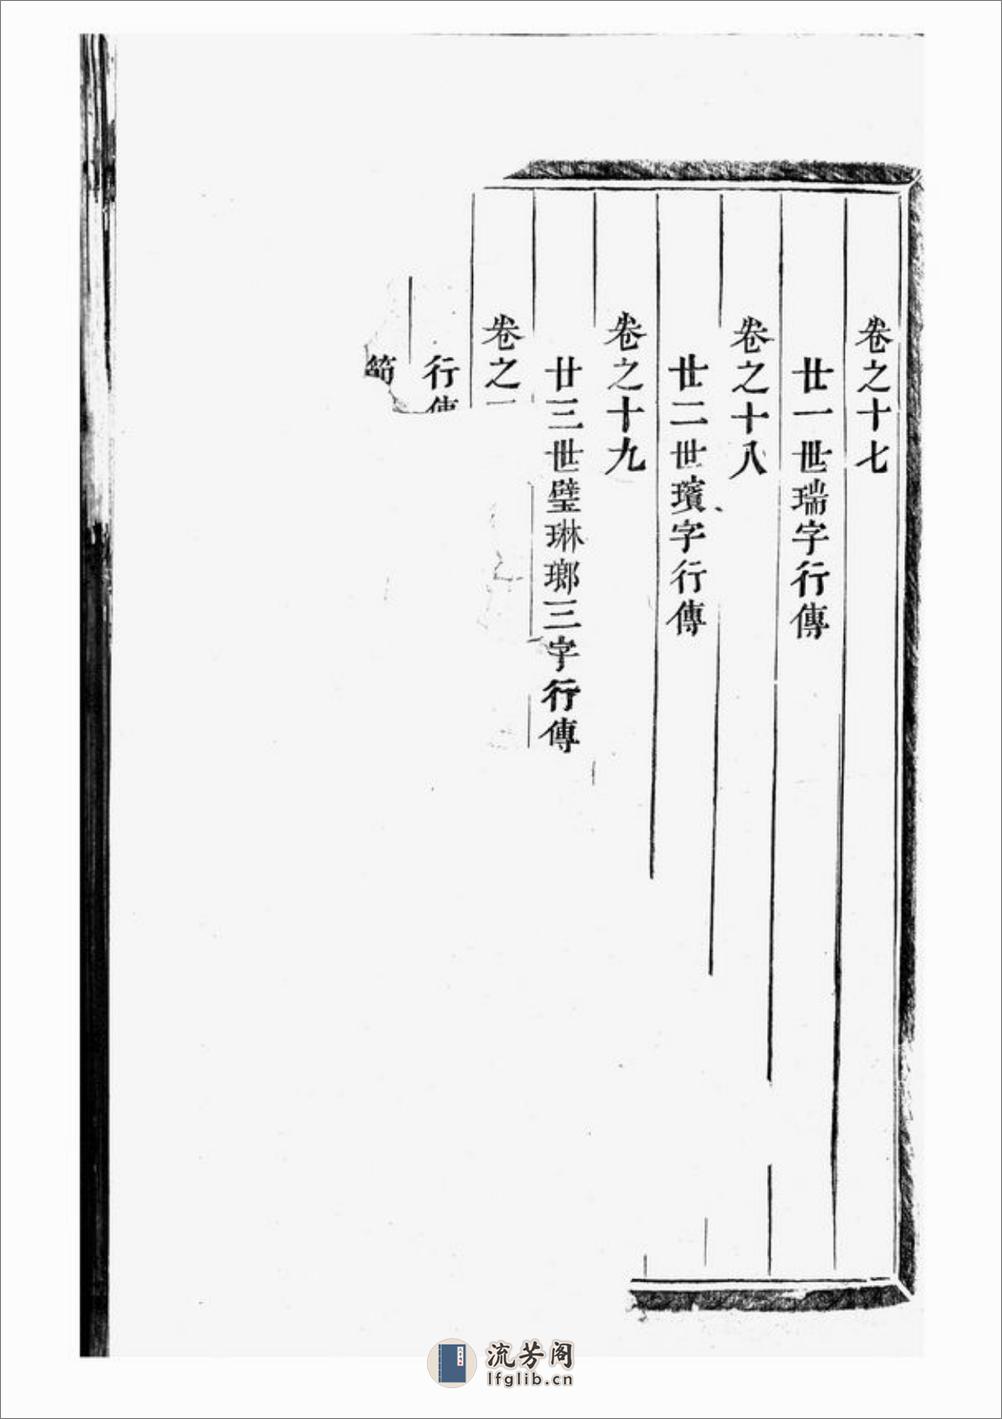 卷之十七
廿一世瑞字行傳
卷之十八
廿二世璸字行傳
卷之十九
廿三世璧琳瑯三字行傳
卷之
行傳
流芳阁
lfglib.cn